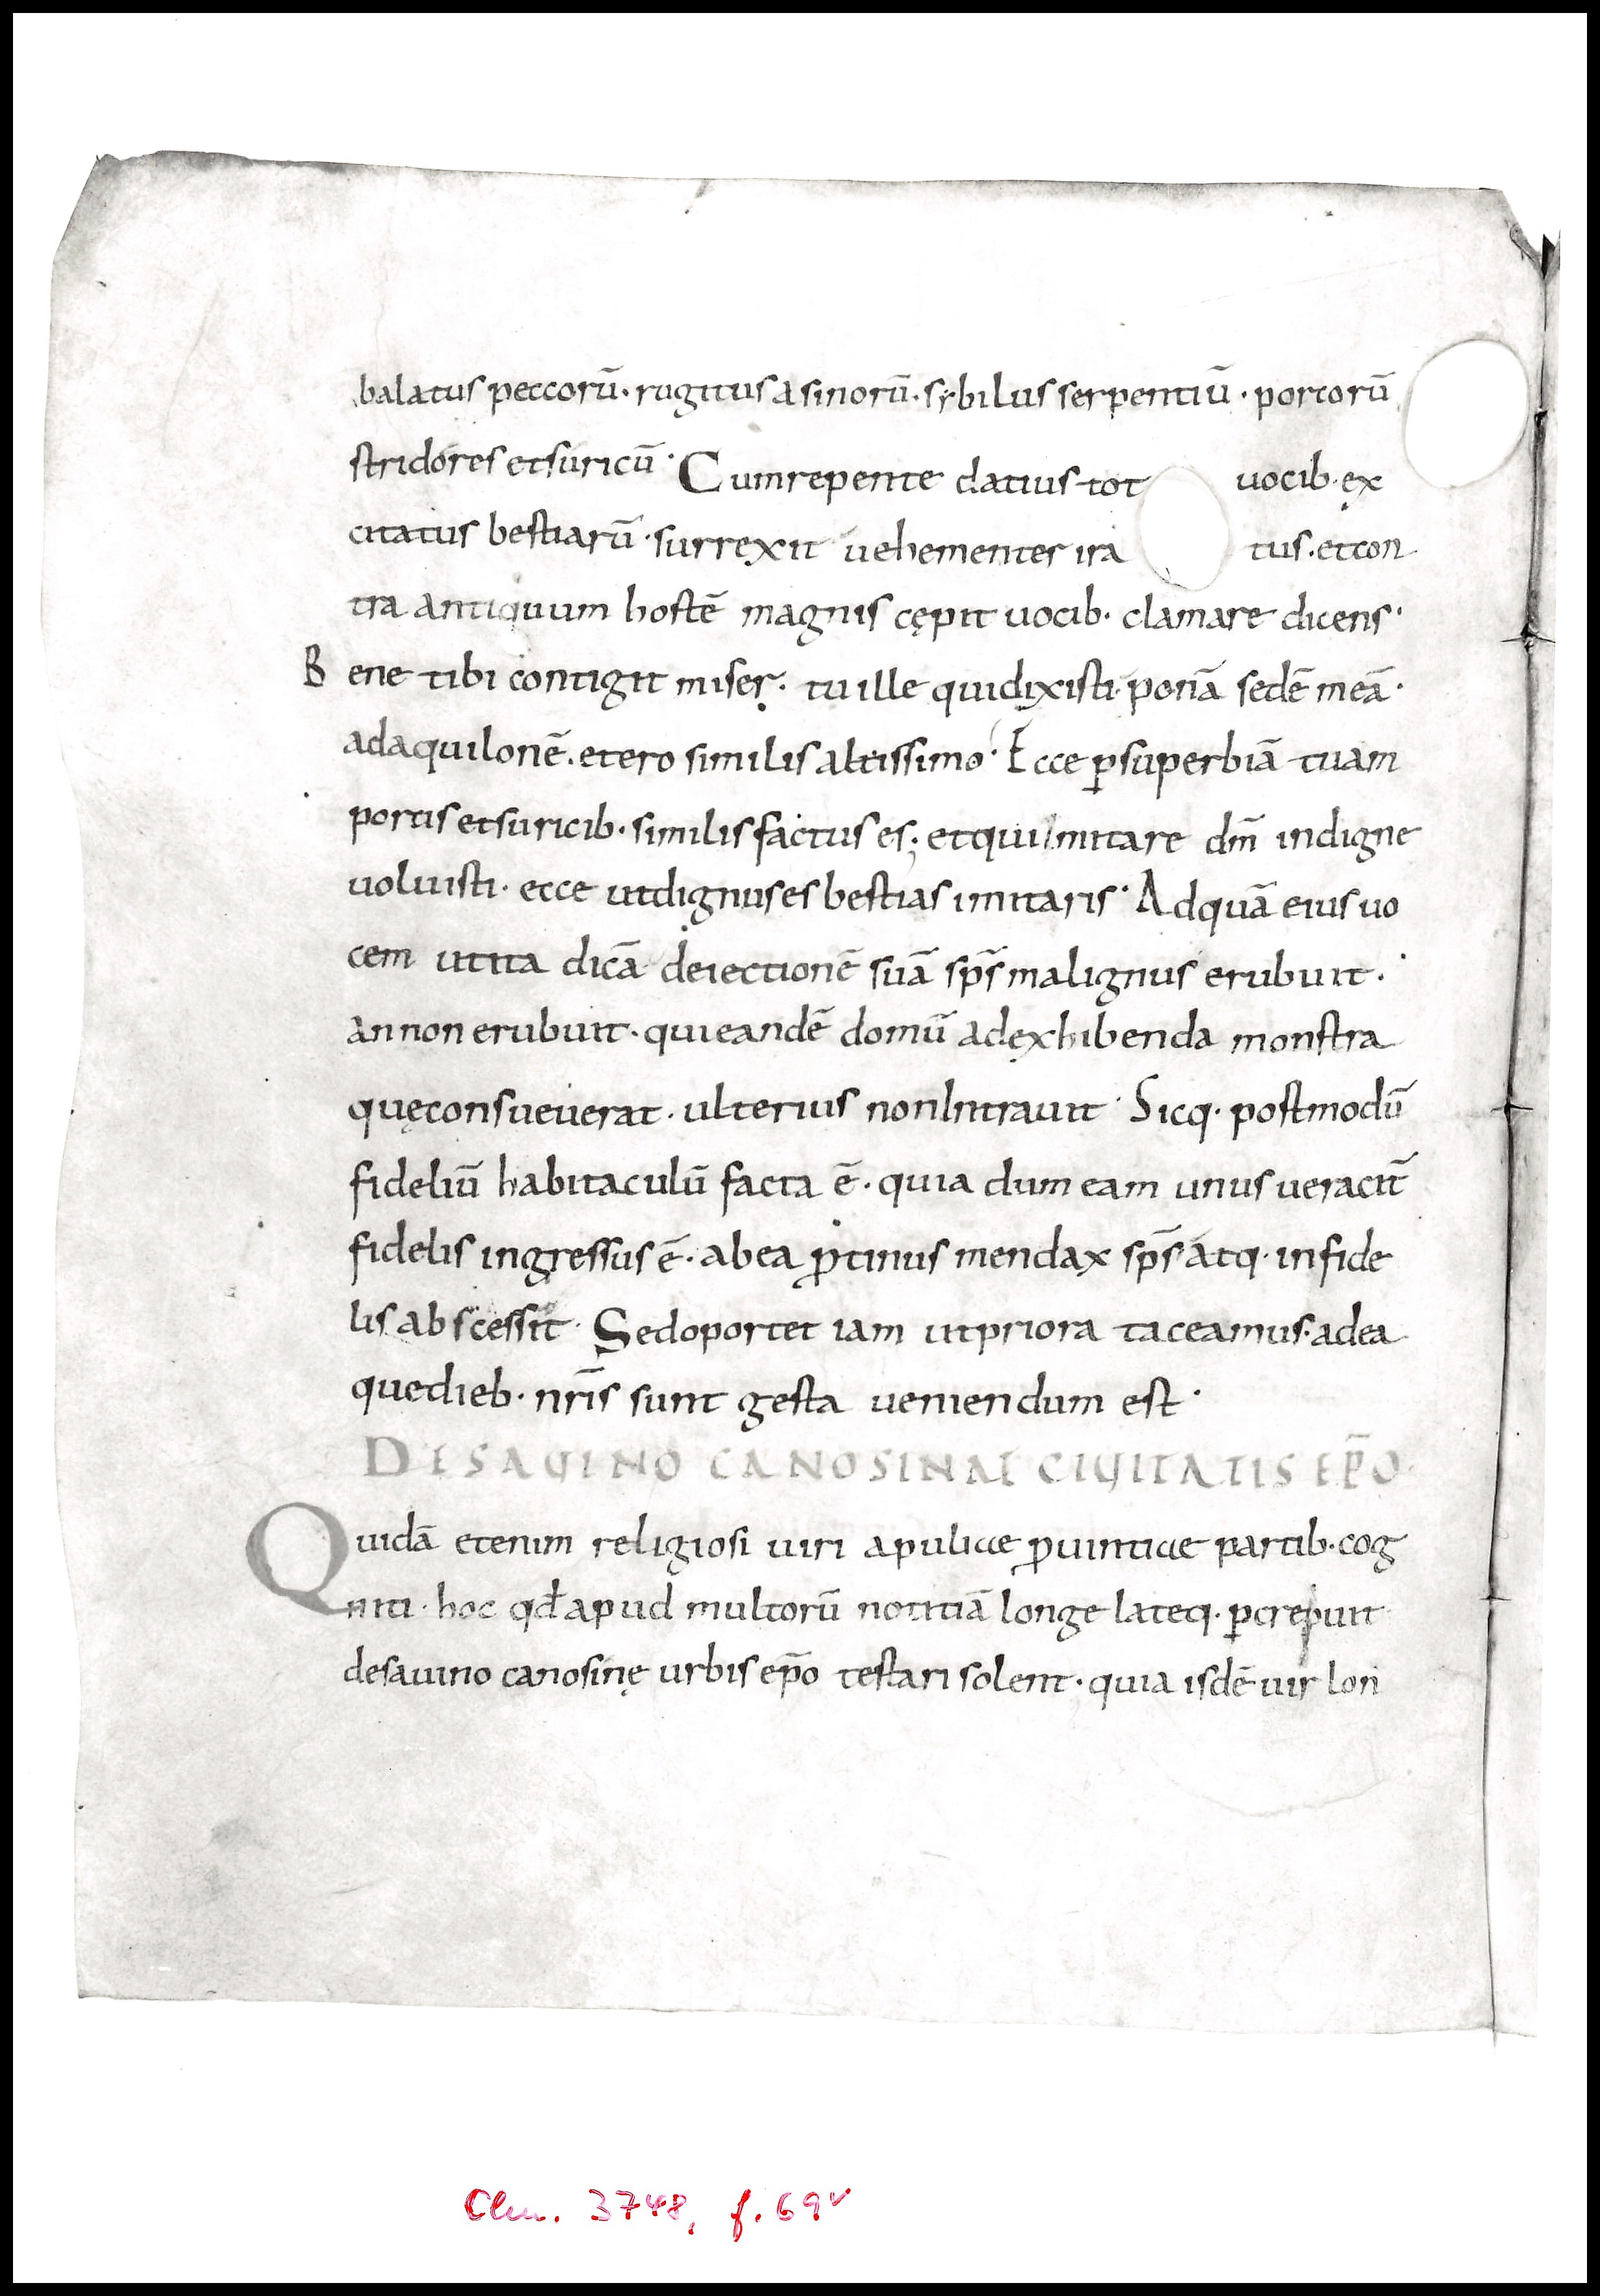 balatus peccorū. rugitus asinorū. sybilus serpentiū. porcorū
stridores et suricū. Cum repente datius tot uocib. ęx
citatus bestiarū. surrexit uehementer ira tus. et con
tra antiquum hostē magnis cępit uocib. clamare dicens.
Bene tibi contigit miser. tu ille qui dixisti ponā sedē meā.
ad aquilonē. et ero similis altissimo. Ecce ꝑ superbiā tuam
porcis et suricib. similis factus es; et qui imitare dm̄ indigne
uoluisti. ecce ut dignus es bestias imitaris. Ad quā eius uo
cem ut ita dicā deiectionē suā sps̄ malignus erubuit.
an non erubuit. qui eandē domū ad ęxhibenda monstra
quę consueuerat. ulterius non intrauit. Sicq. postmodū
fideliū habitaculū facta ē. quia dum eam unus ueracit̄
fidelis ingressus ē. ab ea ꝓtinus mendax sps̄ atq. infide
lis abscessit. Sed oportet iam ut priora taceamus. ad ea
que dieb. nr̄is sunt gesta ueniendum est.
DE SAUINO CANOSINAE CIUITATIS EP̄O.
Quidā etenim religiosi uiri apuliae ꝓuintiae partib. cog
niti. hoc qđ apud multorū notitiā longe lateq. ꝑcrepuit
de sauino canosinę urbis ep̄o testari solent. quia isdē uir lon
Clm. 3748, f. 69v